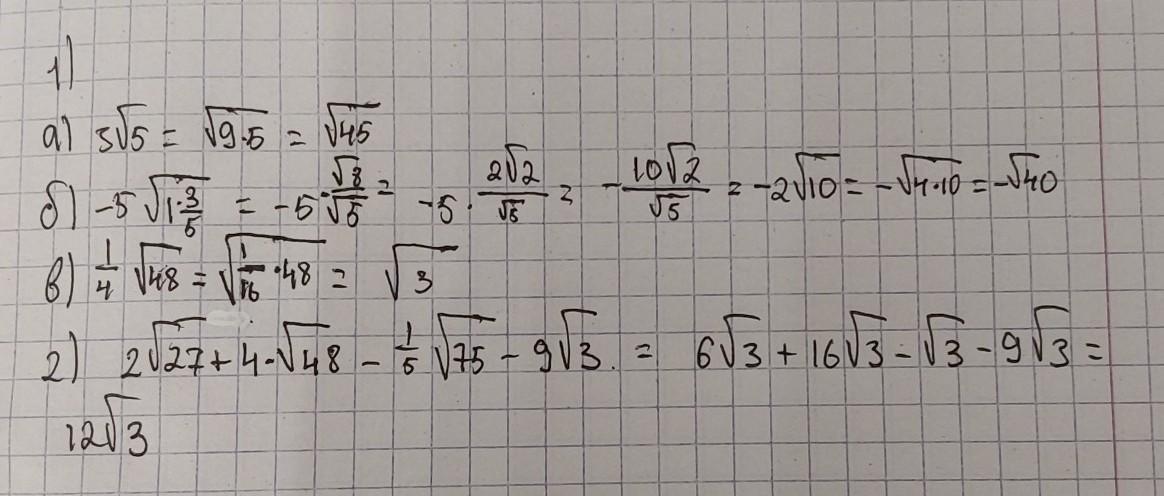 1)
а) 3√5 = √9·5 = √45
б) -5 √1·3/5 = -5 · √8/√5 = -5 · 2√2/√5 = - 10√2/√5 = -2√10 = -√4·10 = -√40
в) 1/4 √48 = √1/16 · 48 = √3
2) 2√27 + 4·√48 - 1/5 √75 - 9√3. = 6√3 + 16√3 - √3 - 9√3 =
12√3